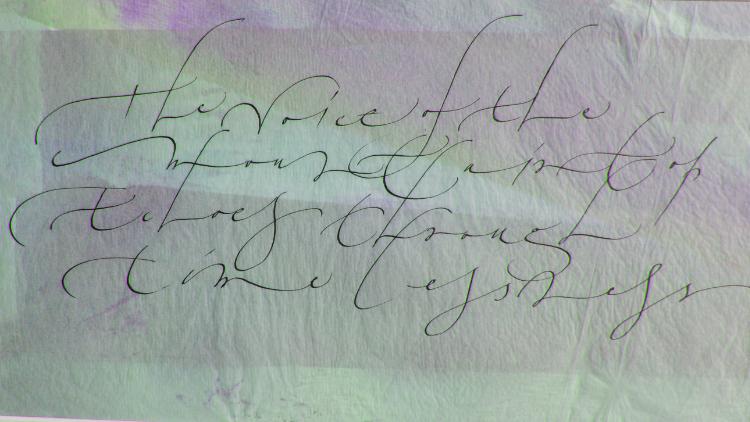 the Voice of the
Mountaintop
Echoes through
timelessness